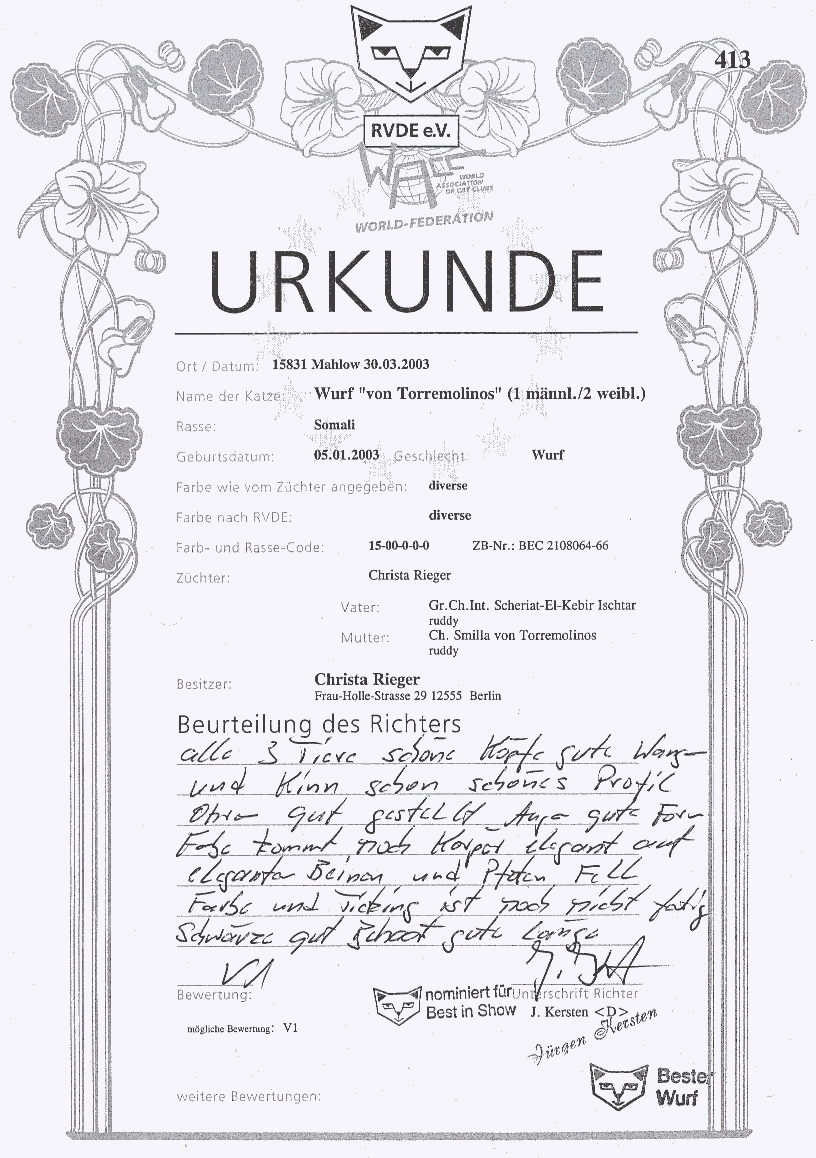 413
RVDE e.V.
WACC WORLD
ASSOCIATION
OF CAT CLUBS
WORLD-FEDERATION
URKUNDE
Ort / Datum: 15831 Mahlow 30.03.2003
Name der Katze: Wurf "von Torremolinos" (1 männl./2 weibl.)
Rasse: Somali
Geburtsdatum: 05.01.2003 Geschlecht: Wurf
Farbe wie vom Züchter angegeben: diverse
Farbe nach RVDE: diverse
Farb- und Rasse-Code: 15-00-0-0-0 ZB-Nr.: BEC 2108064-66
Züchter: Christa Rieger
Vater: Gr.Ch.Int. Scheriat-El-Kebir Ischtar
ruddy
Mutter: Ch. Smilla von Torremolinos
ruddy
Besitzer: Christa Rieger
Frau-Holle-Strasse 29 12555 Berlin
Beurteilung des Richters
alle 3 Tiere schöne Köpfe gute Wang
und Kinn schon schönes Profil
Ohren gut gestellt Auge gute Form
Farbe kommt noch Körper elegant auf
eleganten Beinen und Pfoten Fell
Farbe und Ticking ist noch nicht fertig
Schwänze gut behaart gute Länge
V1
Bewertung: nominiert für Unterschrift Richter
Best in Show J. Kersten <D>
mögliche Bewertung: V1
Jürgen Kersten
Bester
Wurf
weitere Bewertungen: